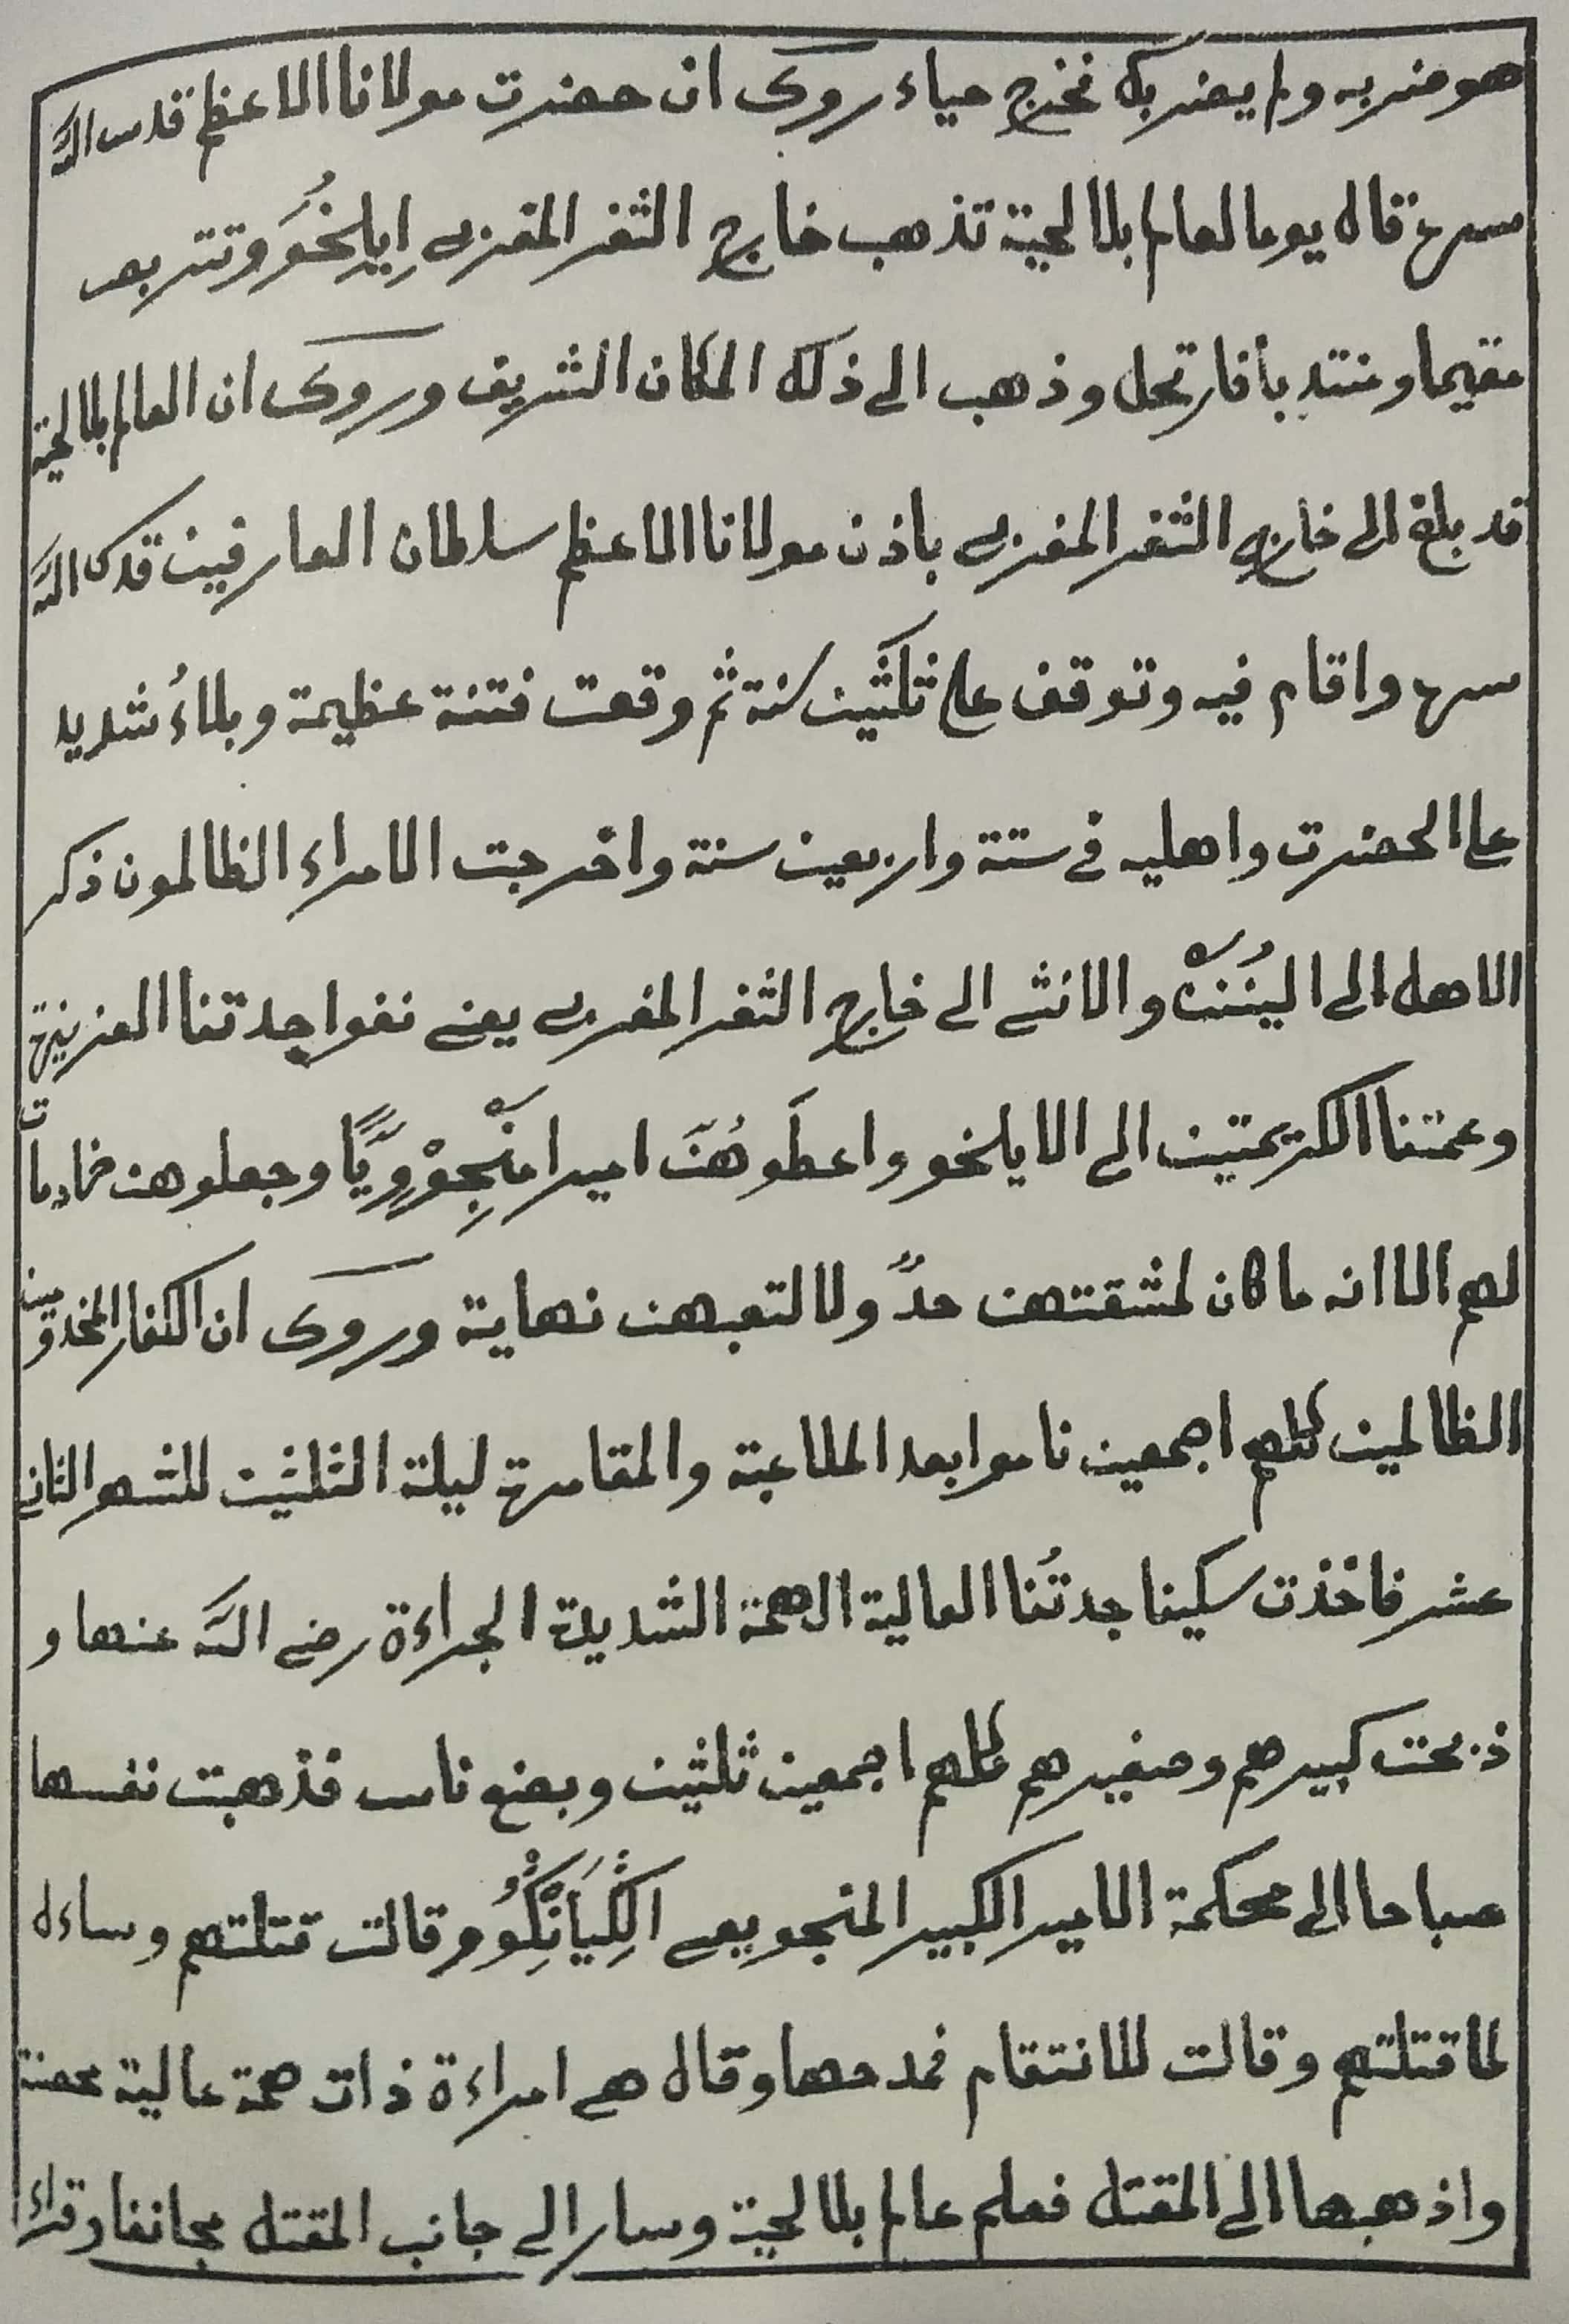 هو ضربه ولم يضربك فخرج حياء روى ان حضرت مولانا الاعظم قدس الله
سره قال يوما لعالم بلا لحية تذهب خارج الثغر المغربى اِيلِخُوَ وتتربص
مقيما ومنتد بأفارتحل وذهب الى ذلك المكان الشريف وروى ان العالم بلا لحية
قد بلغ الى خارج الثغر المغربى باذن مولانا الاعظم سلطان العارفين قدس الله
سره واقام فيه وتوقف على ثلثين سنة ثم وقعت فتنة عظيمة وبلاءُ شديد
على الحضرت واهليه فى ستة واربعين سنة واخرجت الامراء الظالمون ذكر
الاهل الى اليُنَنْ والانثى الى خارج الثغر المغربى يعنى نفوا جدتنا العزيزة
وعمتنا الكريمتين الى الايلخو واعطَوهُنَ اميرا مَنْجِوْرِيًّا وجعلوهن خادمات
لهم الا انه ما كان لمشقتهن حدٌ ولا لتعبهن نهاية وروى ان الكفار المخذومين
الظالمين كلهم اجمعين ناموا بعد الملاعبة والمقامرة ليلة الثلثين للشهر الثانى
عشر فاخذت سكينا جدتُنا العالية الهمة الشديدة الجراءة رضى الله عنها و
ذبحت كبيرهم وصغيرهم كلهم اجمعين ثلثين وبضع ناس فذهبت نفسها
صباحا الى محكمة الامير الكبير المنجويعى الكِيَانْكُو وقالت قتلتهم وساءل
لما قتلتهم وقالت للانتقام فمدحها وقال هى امراءة ذات همة عالية محضة
واذهبها الى المقتل فعلم عالم بلا لحية وسار الى جانب المقتل مجانفا وقراء